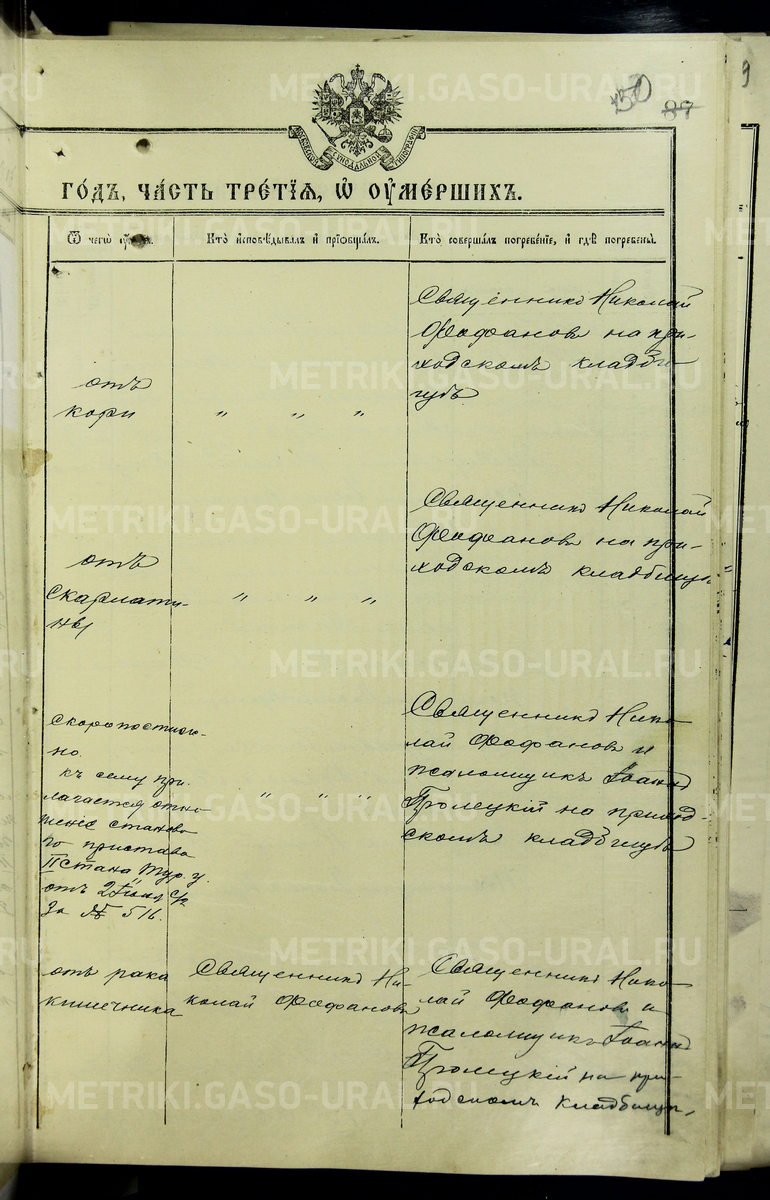 150 87
МОСКОВСКОЙ СѴНОДАЛЬНОЙ ТИПОГРАФІИ
ГО́ДЪ, ЧА́СТЬ ТРЕ́ТІѦ, Ѡ҆ ОУ҆МЕ́РШИХЪ.
Ѿ чегѡ̀
Кто̀ и҆сповѣ́дывалъ и҆ прїѡбща́лъ.
Кто̀ соверша́лъ погребе́нїе, и҆ гдѣ̀ погребены̀.
отъ
кори
" " "
Священникъ Николай
Феофановъ на при-
ходскомъ кладби
щѣ
отъ
скарлати-
ны
" " "
Священникъ Николай
Феофановъ на при-
ходскомъ кладбищѣ
скоропостиж-
но.
къ сему при
лагается отно
шеніе станово
го пристава
II стана Тур. у.
отъ 2 Іюня с/г
за № 516.
" " "
Священникъ Нико
лай Феофановъ и
псаломщикъ Іоаннъ
на приход-
скомъ кладбищѣ
отъ рака
кишечника
Священникъ Ни-
колай Феофановъ
Священникъ Нико
лай Феофановъ и
псаломщикъ Іоаннъ
на при-
ходскомъ кладбищѣ,
METRIKI.GASO-URAL.RU